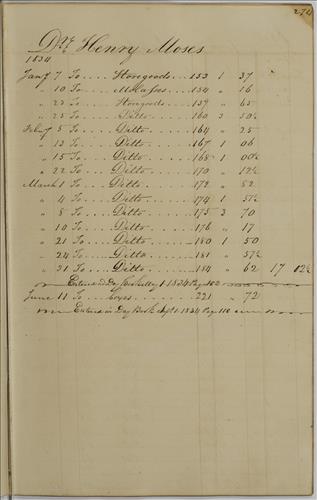 272
Dr. Henry Moses
1834
Jany 7 To .... Storegoods ... 153 1 37
" 10 To .... Molasses .... 154 " 16
" 23 To .... Storegoods .... 159 " 65
" 25 To .... Ditto ..... 160 3 50½
Feby 5 To .... Ditto ..... 164 " 25
" 13 To .... Ditto ..... 167 1 06
" 15 To .... Ditto ..... 168 1 00½
" 22 To .... Ditto ..... 170 " 12½
March 1 To .... Ditto ..... 172 " 82
" 4 To .... Ditto ..... 174 1 57½
" 8 To .... Ditto ..... 175 3 70
" 10 To .... Ditto ..... 176 " 17
" 21 To .... Ditto ..... 180 1 50
" 24 To .... Ditto ..... 181 " 57½
" 31 To .... Ditto ..... 184 " 62 17 12½
Entered in Day Book 1834 Page 102
June 11 To .... Coxes ..... 221 " 72
Entered in Day Book Sept 1 1834 Page 110